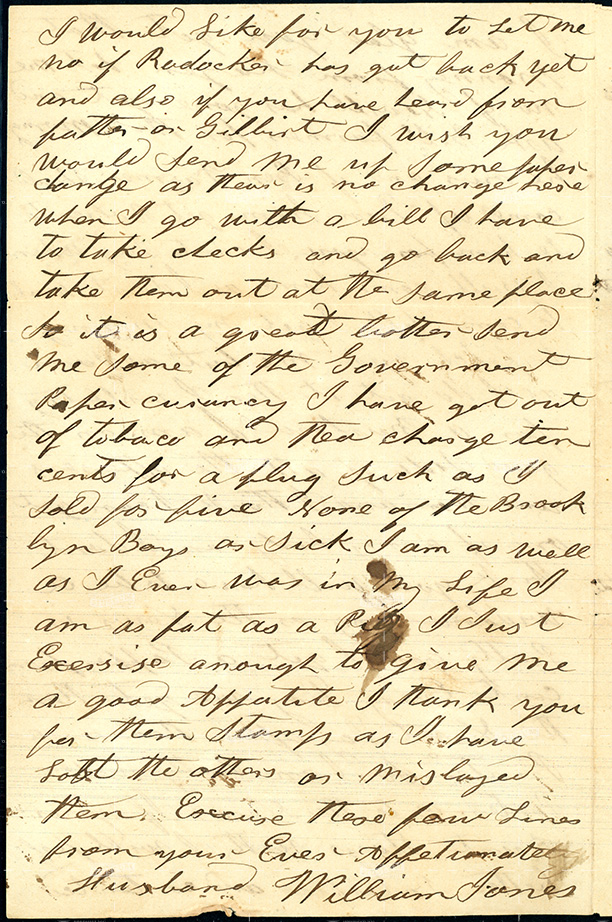 I would Like for you to Let me
no if Radocker has got back yet
and also if you have heard from
patter or Gilbirt I wish you
would Send me up Some paper
change as thear is no change here
when I go with a bill I have
to take checks and go back and
take them out at the same place
So it is a great bother Send
me Some of the Government
Paper curancy I have got out
of tobaco and thea charge ten
cents for a plug Such as I
Sold for five None of the Brook
lyn Boys ar Sick I am as well
as I Ever was in My Life I
am as fat as a Pig I Just
Exersise anough to give me
a good Appatite I thank you
for them Stamps as I have
Lost the others or Mislayed
them. Excuse these few Lines
from your Ever Affetunately
Husband William Jones